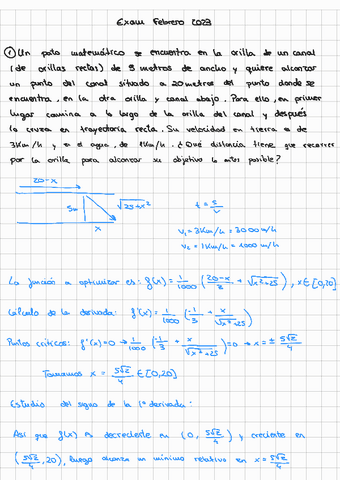 Exam Febrero 2023
① Un pato matemático se encuentra en la orilla de un canal
(de orillas rectas) de 5 metros de ancho y quiere alcanzar
un punto del canal situado a 20 metros del punto donde se
encuentra, en la otra orilla y canal abajo. Para ello, en primer
lugar camina a lo largo de la orilla del canal y después
lo cruza en trayectoria recta. Su velocidad en tierra es de
3Km/h y en el agua, de 1Km/h. ¿Qué distancia tiene que recorrer
por la orilla para alcanzar su objetivo lo antes posible?
20-x
5m
√25+x²
x
t = s/v
v₁ = 3Km/h = 3000 m/h
v₂ = 1Km/h = 1000 m/h
La función a optimizar es: f(x) = 1/1000 (20-x/3 + √x²+25), x∈[0,20].
Cálculo de la derivada: f'(x) = 1/1000 (-1/3 + x/√x²+25)
Puntos críticos: f'(x)=0 → 1/1000 (-1/3 + x/√x²+25)=0 → x = ± 5√2/4
Tomamos x = 5√2/4 ∈ [0,20]
Estudio del signo de la 1ª derivada:
Así que f(x) es decreciente en (0, 5√2/4) y creciente en
(5√2/4, 20), luego alcanza un mínimo relativo en x = 5√2/4